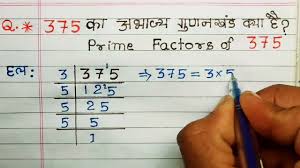 Q.* 375 का अभाज्य गुणनखंड क्या है?
Prime Factors of 375
हल: 3 375 ⇒ 375 = 3×5
5 125
5 25
5 5
1